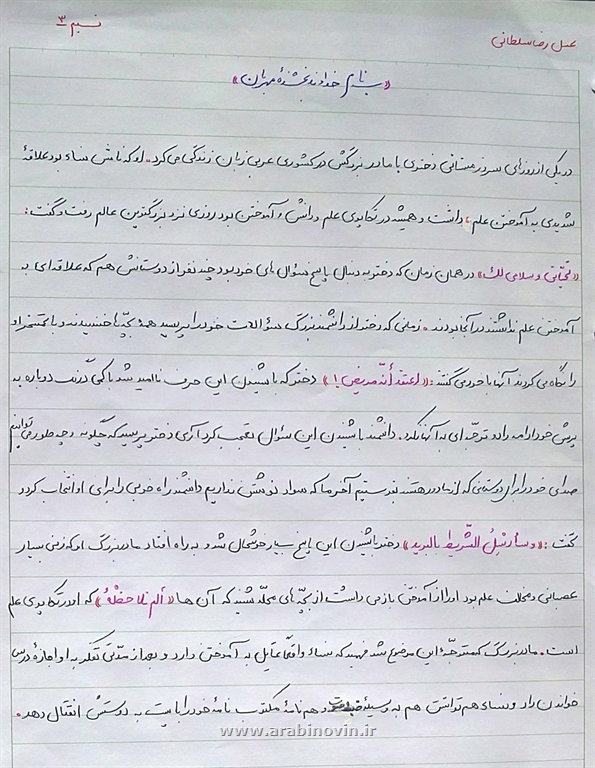 نسیم ۳
عسل رضا سلطانی
«به نام خداوند بخشندهٔ مهربان»
در یکی از روزهای سرد زمستانی دختری با مادر بزرگش در کشوری عربی زبان زندگی می کرد. او که نامش سناء بود علاقهٔ
شدیدی به آموختن علم، داشت و همیشه در تکاپوی علم و دانش و آموختن بود روزی نزد بزرگترین عالم رفت و گفت:
«تحیاتی و سلامی لک» در همان زمان که دختر به دنبال پاسخ سؤال های خود بود چند نفر از دوستانش هم که علاقه ای به
آموختن علم نداشتند در آنجا بودند. زمانی که دختر از دانشمند بزرگ سؤالات خود را پرسید همهٔ بچّه ها خندیدند و با تمسخر او
را نگاه می کردند آنها با خود می گفتند: «اعتقد أنّه مریض!» دختر که با شنیدن این حرف ناامید شد با کمی درنگ دوباره به
پرسش خود ادامه داد و توجّه ای به آنها نکرد. دانشمند با شنیدن این سؤال تعجب کرد آری دختر پرسید که چگونه و چه طور می توانیم
صدای خود را برای دوستانی که از ما دور هستند بفرستیم آخر ما که سواد نوشتن نداریم دانشمند راه خوبی را برای او انتخاب کرد و
گفت: «و سأرسل الشّریط بالبرید» دختر با شنیدن این پاسخ بسیار خوشحال شد و به راه افتاد مادربزرگ او که زنی بسیار
عصبانی و مخالف علم بود او را از آموختن باز می داشت از بچّه های محلّه شنید که آن ها «ألم تلاحظهُ» که او در تکاپوی علم
است. مادربزرگ که متوجّهٔ این موضوع شد فهمید که سناء واقعاً تمایل به آموختن دارد و بعد از مدّتی تفکّر به او اجازهٔ درس
خواندن داد و سناء هم توانست هم به وسیلهٔ و هم نامهٔ مکتوب نامهٔ خود را بابت به دوستش انتقال دهد.
www.arabinovin.ir